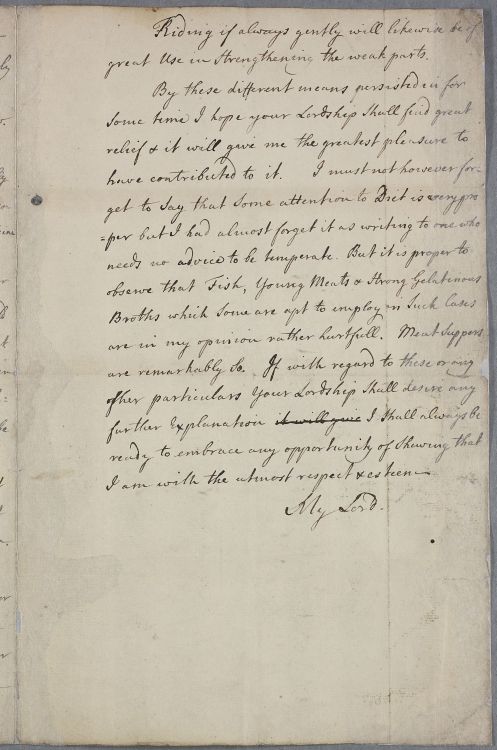 Riding if always gently will likewise be of
great Use in Strengthening the weak parts.
By these different means persisted in for
Some time I hope your Lordship Shall find great
relief & it will give me the greatest pleasure to
have contributed to it. I must not however for-
get to Say that Some attention to Diet is very pro
=per but I had almost forget it as writing to one who
needs no advice to be temperate. But it is proper to
observe that Fish, Young Meats & Strong Gelatinous
Broths which Some are apt to employ in Such Cases
are in my opinion rather hurtfull. Meat Suppers
are remarkably So. If with regard to these or any
other particulars Your Lordship Shall desire any
further Explanation it will give I Shall always be
ready to embrace any opportunity of Shewing that
I am with the utmost respect & esteem
My Lord.